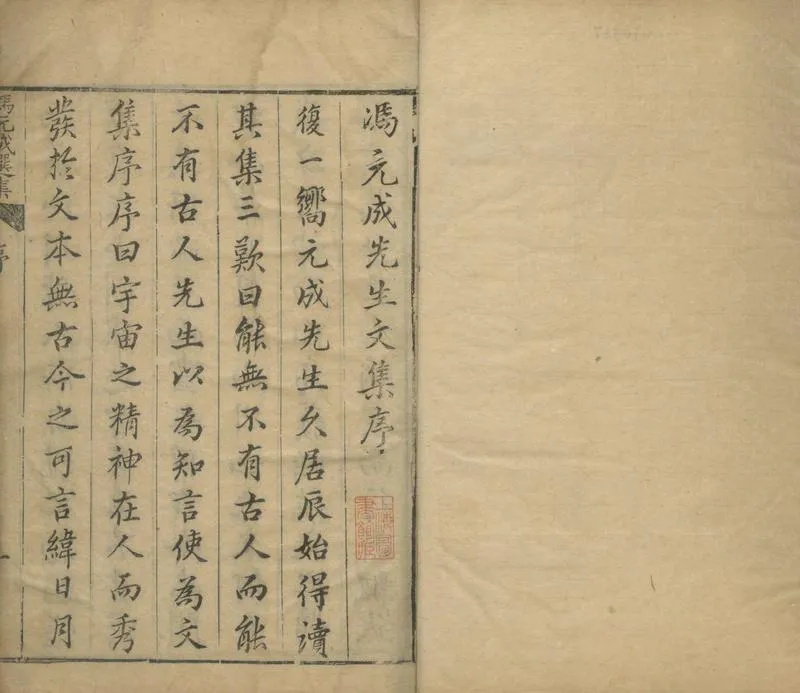 馮元成先生文集序
復一嚮元成先生久居辰始得讀
其集三歎曰能無不有古人而能
不有古人先生以為知言使為文
集序序曰宇宙之精神在人而秀
發於文本無古今之可言緯日月
馮元成選集
序
一
上海圖書館藏